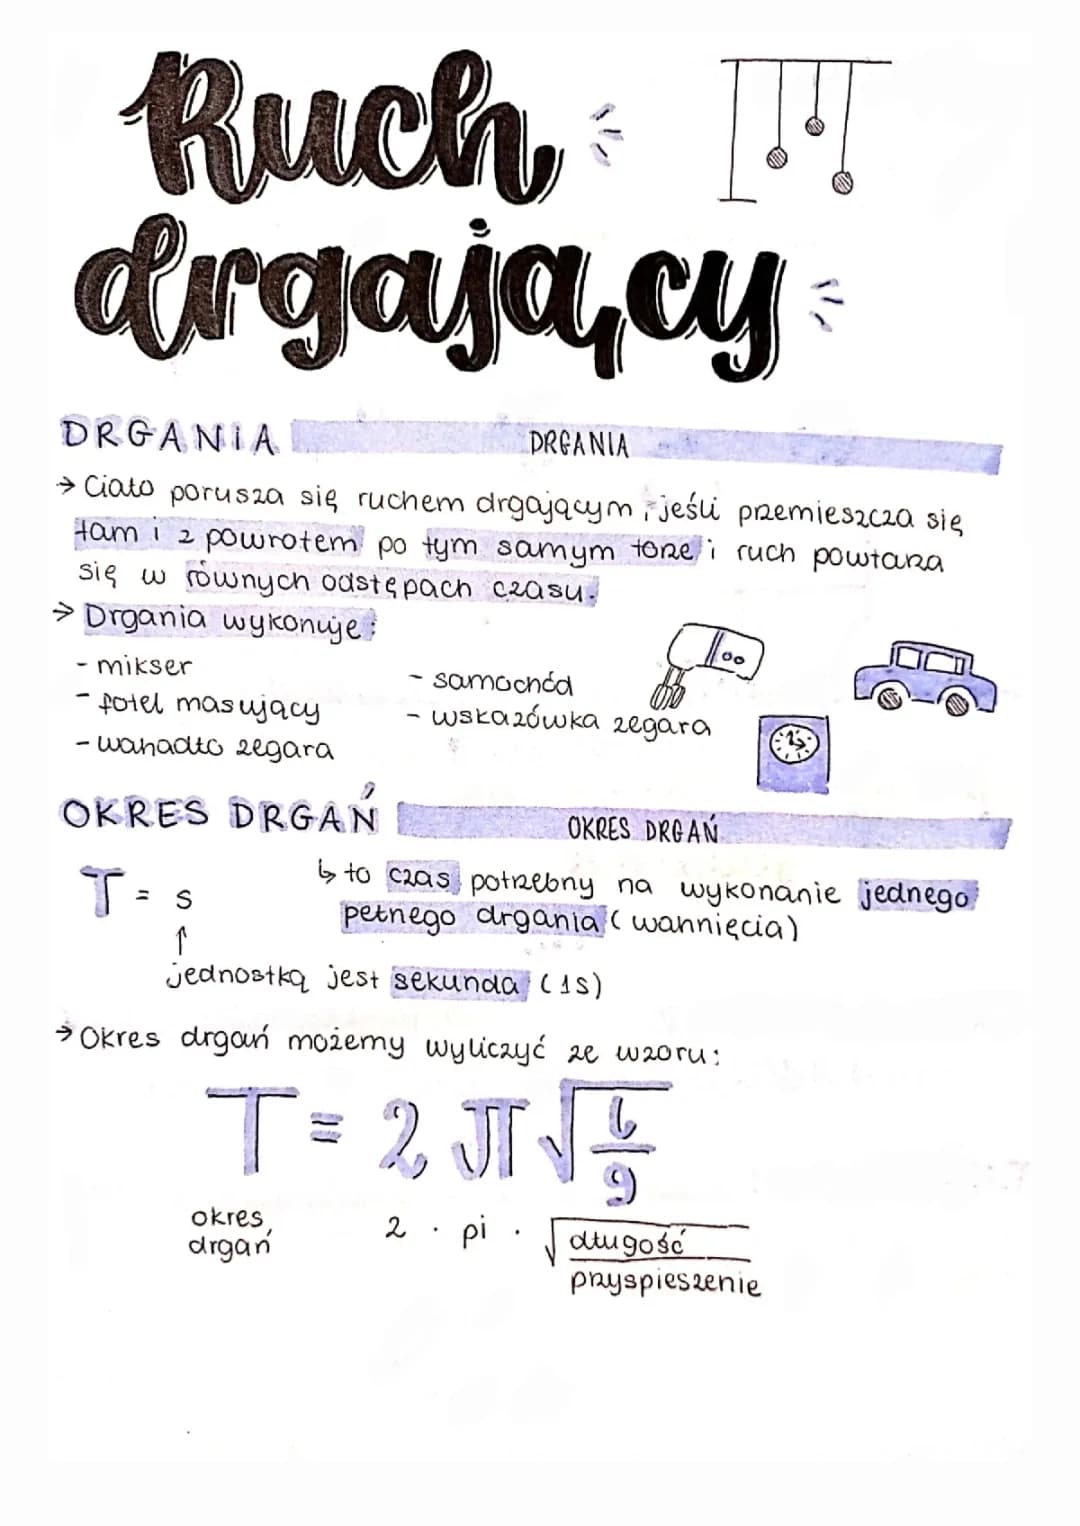 Ruch
drgający
DRGANIA
DRGANIA
→ Ciało porusza się ruchem drgającym, jeśli przemieszcza się
tam i z powrotem po tym samym torze i ruch powtarza
się w równych odstępach czasu.
→ Drgania wykonuje:
- mikser
- fotel masujący
- wahadło zegara
- samochód
- wskazówka zegara
OKRES DRGAŃ
OKRES DRGAŃ
↳ to czas potrzebny na wykonanie jednego
pełnego drgania (wahnięcia)
T = s
↑
jednostką jest sekunda (1s)
→ Okres drgań możemy wyliczyć ze wzoru:
T = 2 π √l/g
okres drgań
2 · pi · √długość/przyspieszenie